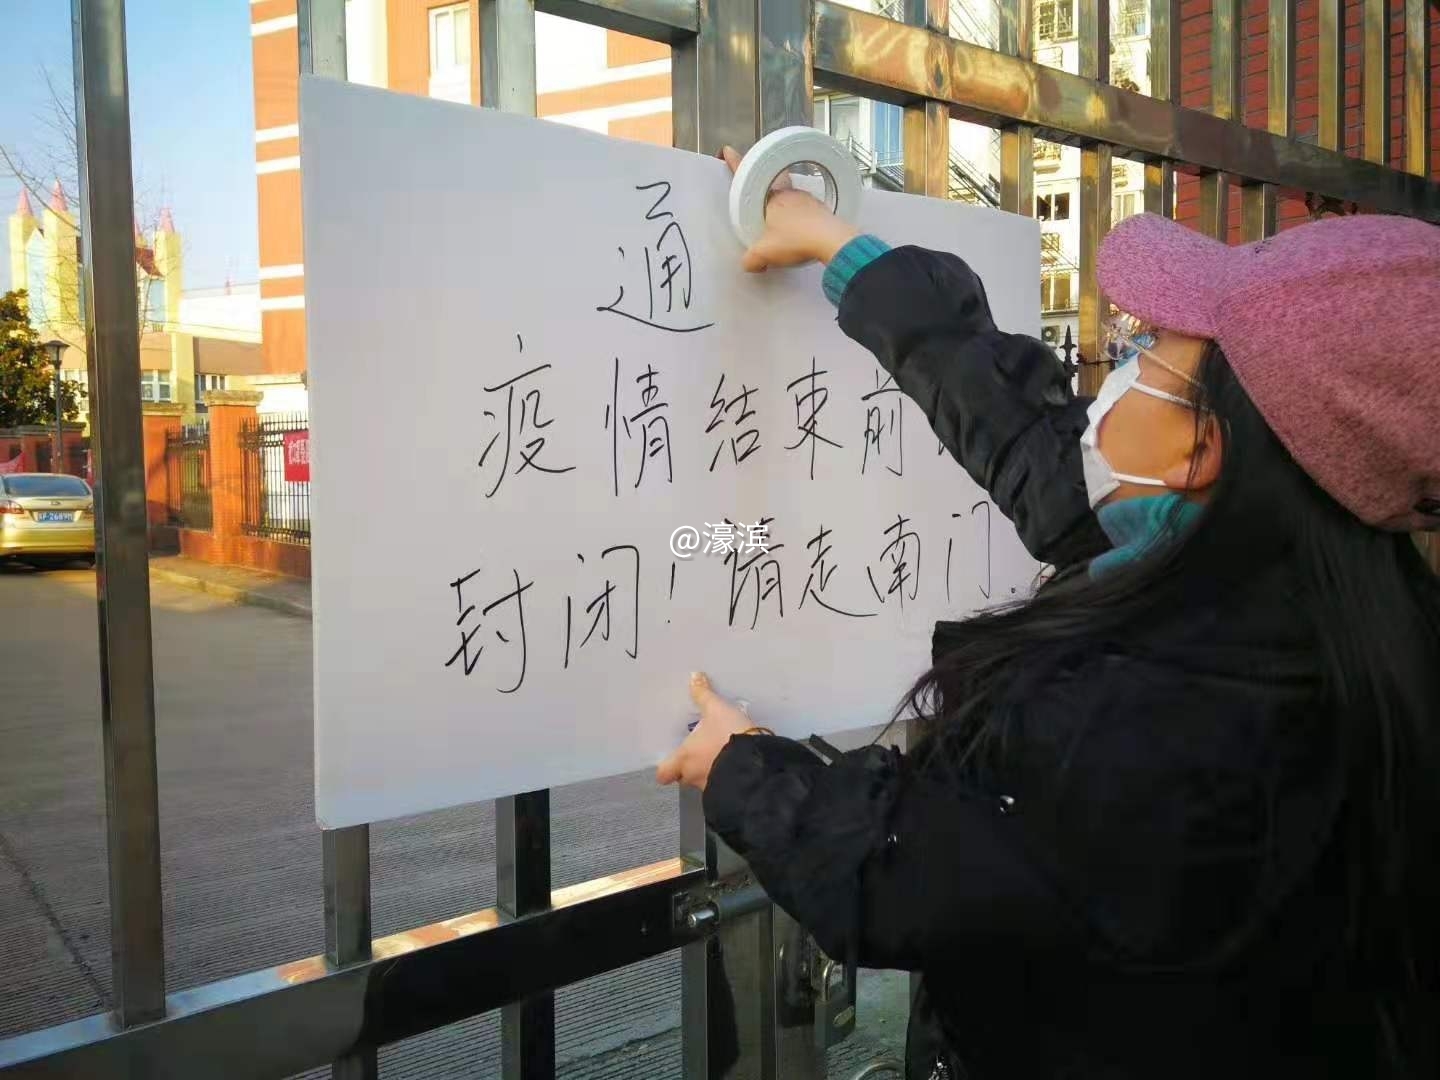 通
疫情结束前
@濠滨
封闭!请走南门.